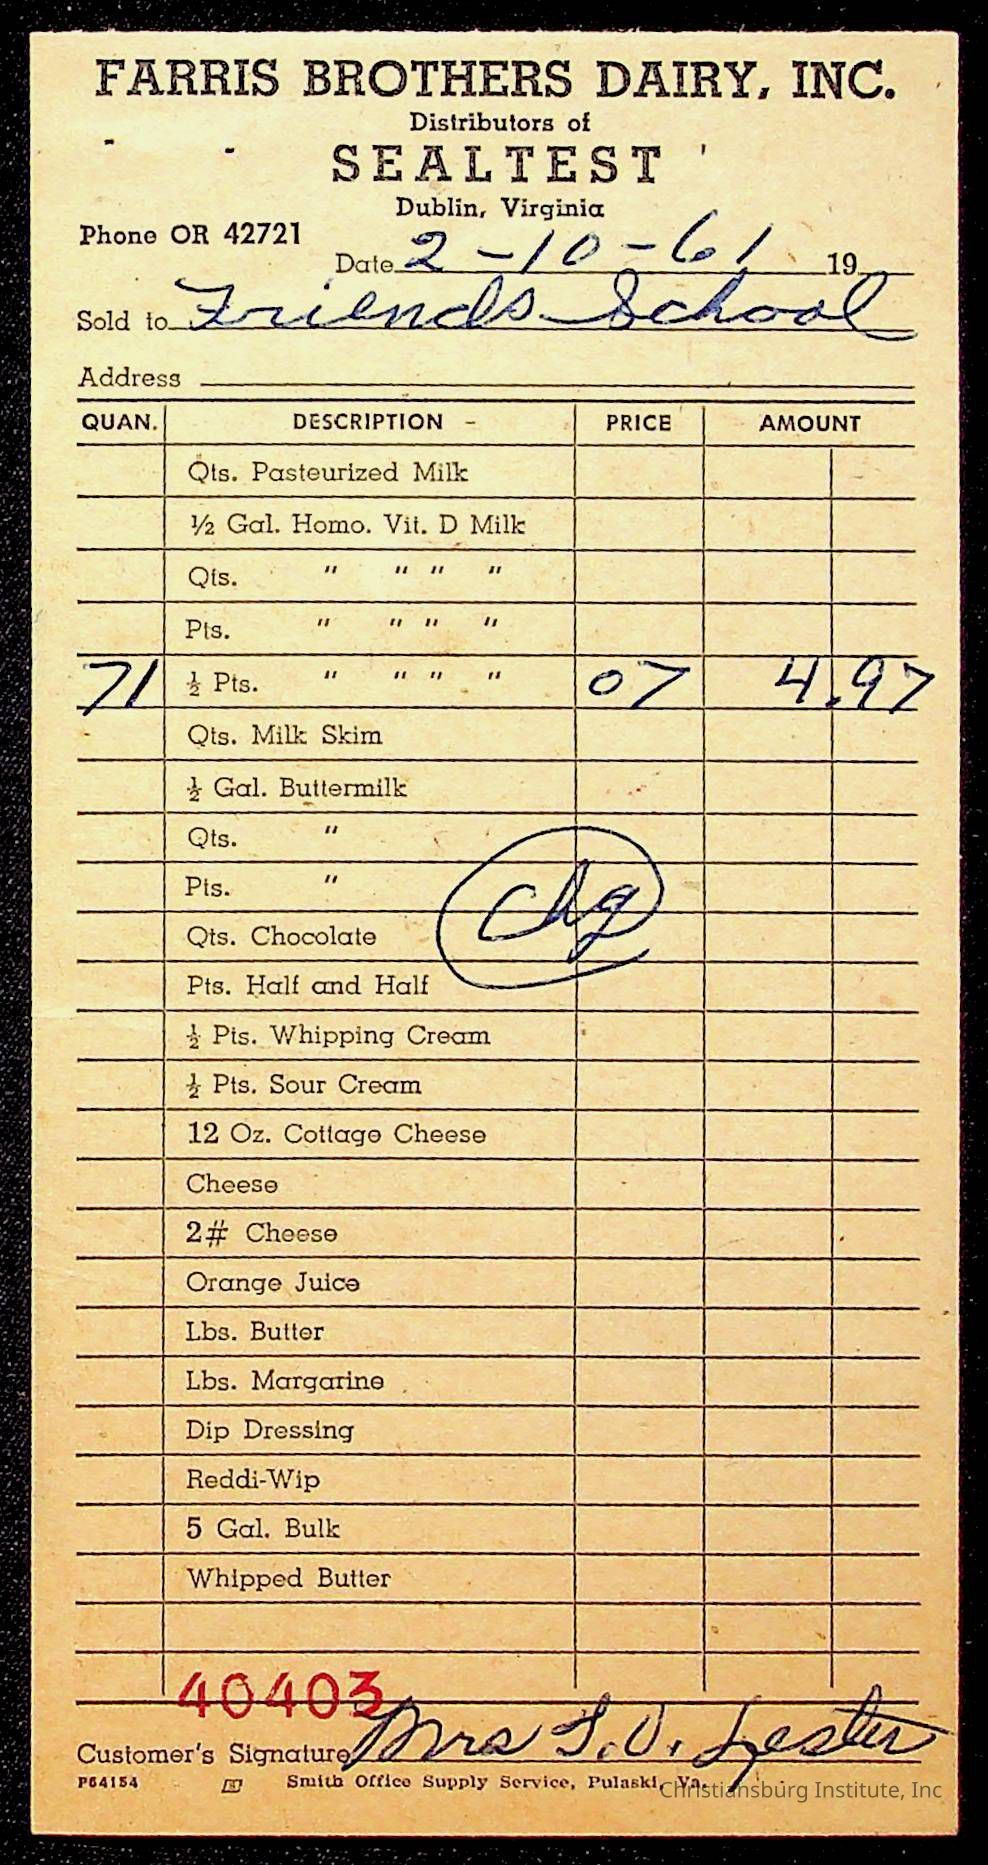 FARRIS BROTHERS DAIRY, INC.
Distributors of
SEALTEST
Dublin, Virginia
Phone OR 42721
Date 2-10-61 19
Sold to Friends School
Address
QUAN. DESCRIPTION - PRICE AMOUNT
Qts. Pasteurized Milk
½ Gal. Homo. Vit. D Milk
Qts. " " " "
Pts. " " " "
71 ½ Pts. " " " " 07 4.97
Qts. Milk Skim
½ Gal. Buttermilk
Qts. "
Pts. "
Chg
Qts. Chocolate
Pts. Half and Half
½ Pts. Whipping Cream
½ Pts. Sour Cream
12 Oz. Cottage Cheese
Cheese
2# Cheese
Orange Juice
Lbs. Butter
Lbs. Margarine
Dip Dressing
Reddi-Wip
5 Gal. Bulk
Whipped Butter
40403
Customer's Signature Mrs T.D. Lester
P64154 Smith Office Supply Service, Pulaski, Va.
Christiansburg Institute, Inc